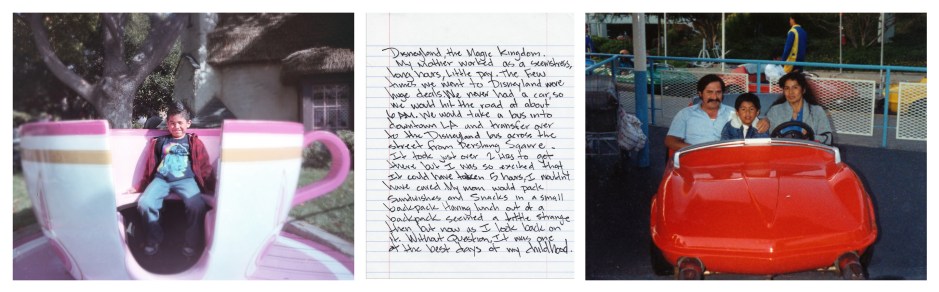 Disneyland the Magic Kingdom.
My Mother worked as a seemstress,
long hours, Little pay. The Few
times we went to Disneyland were
huge deals. We never had a car, so
we would hit the road at about
We would take a bus into
downtown LA and transfer over
to the Disneyland bus across the
street from Pershing Square.
It took just over 2 hrs to get
there but I was so excited that
It could have taken 5 hours, I wouldn't
have cared. My mom would pack
sandwiches and Snacks in a small
backpack. Having lunch out of a
backpack seemed a little strange
then but now as I look back on
it. Without Question, It was one
of the best days of my childhood.